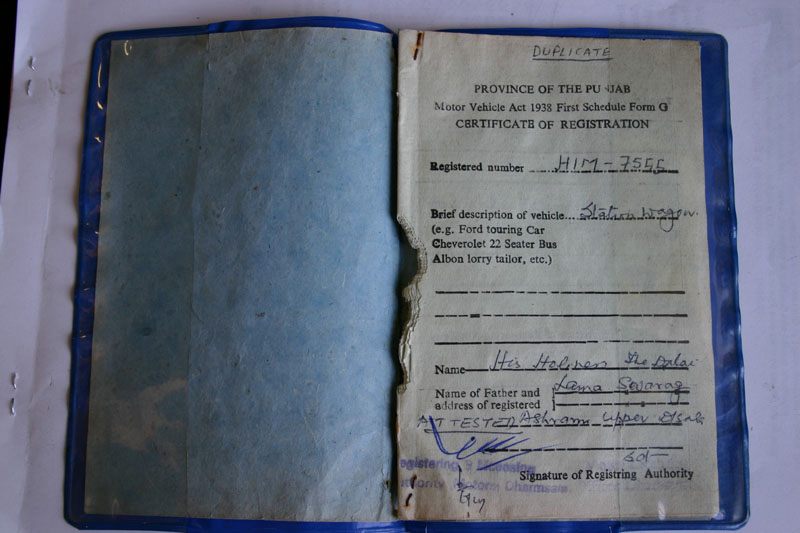 DUPLICATE
PROVINCE OF THE PUNJAB
Motor Vehicle Act 1938 First Schedule Form G
CERTIFICATE OF REGISTRATION
Registered number HIM-7555
Brief description of vehicle Station Wagon.
(e.g. Ford touring Car
Cheverolet 22 Seater Bus
Albon lorry tailor, etc.)
Name His Holiness The Dalai
Name of Father and Lama Swarag
address of registered
ATTESTED Ashram Upper
Sd-
Signature of Registring Authority
Registering & Licensing
Authority Dharmsala